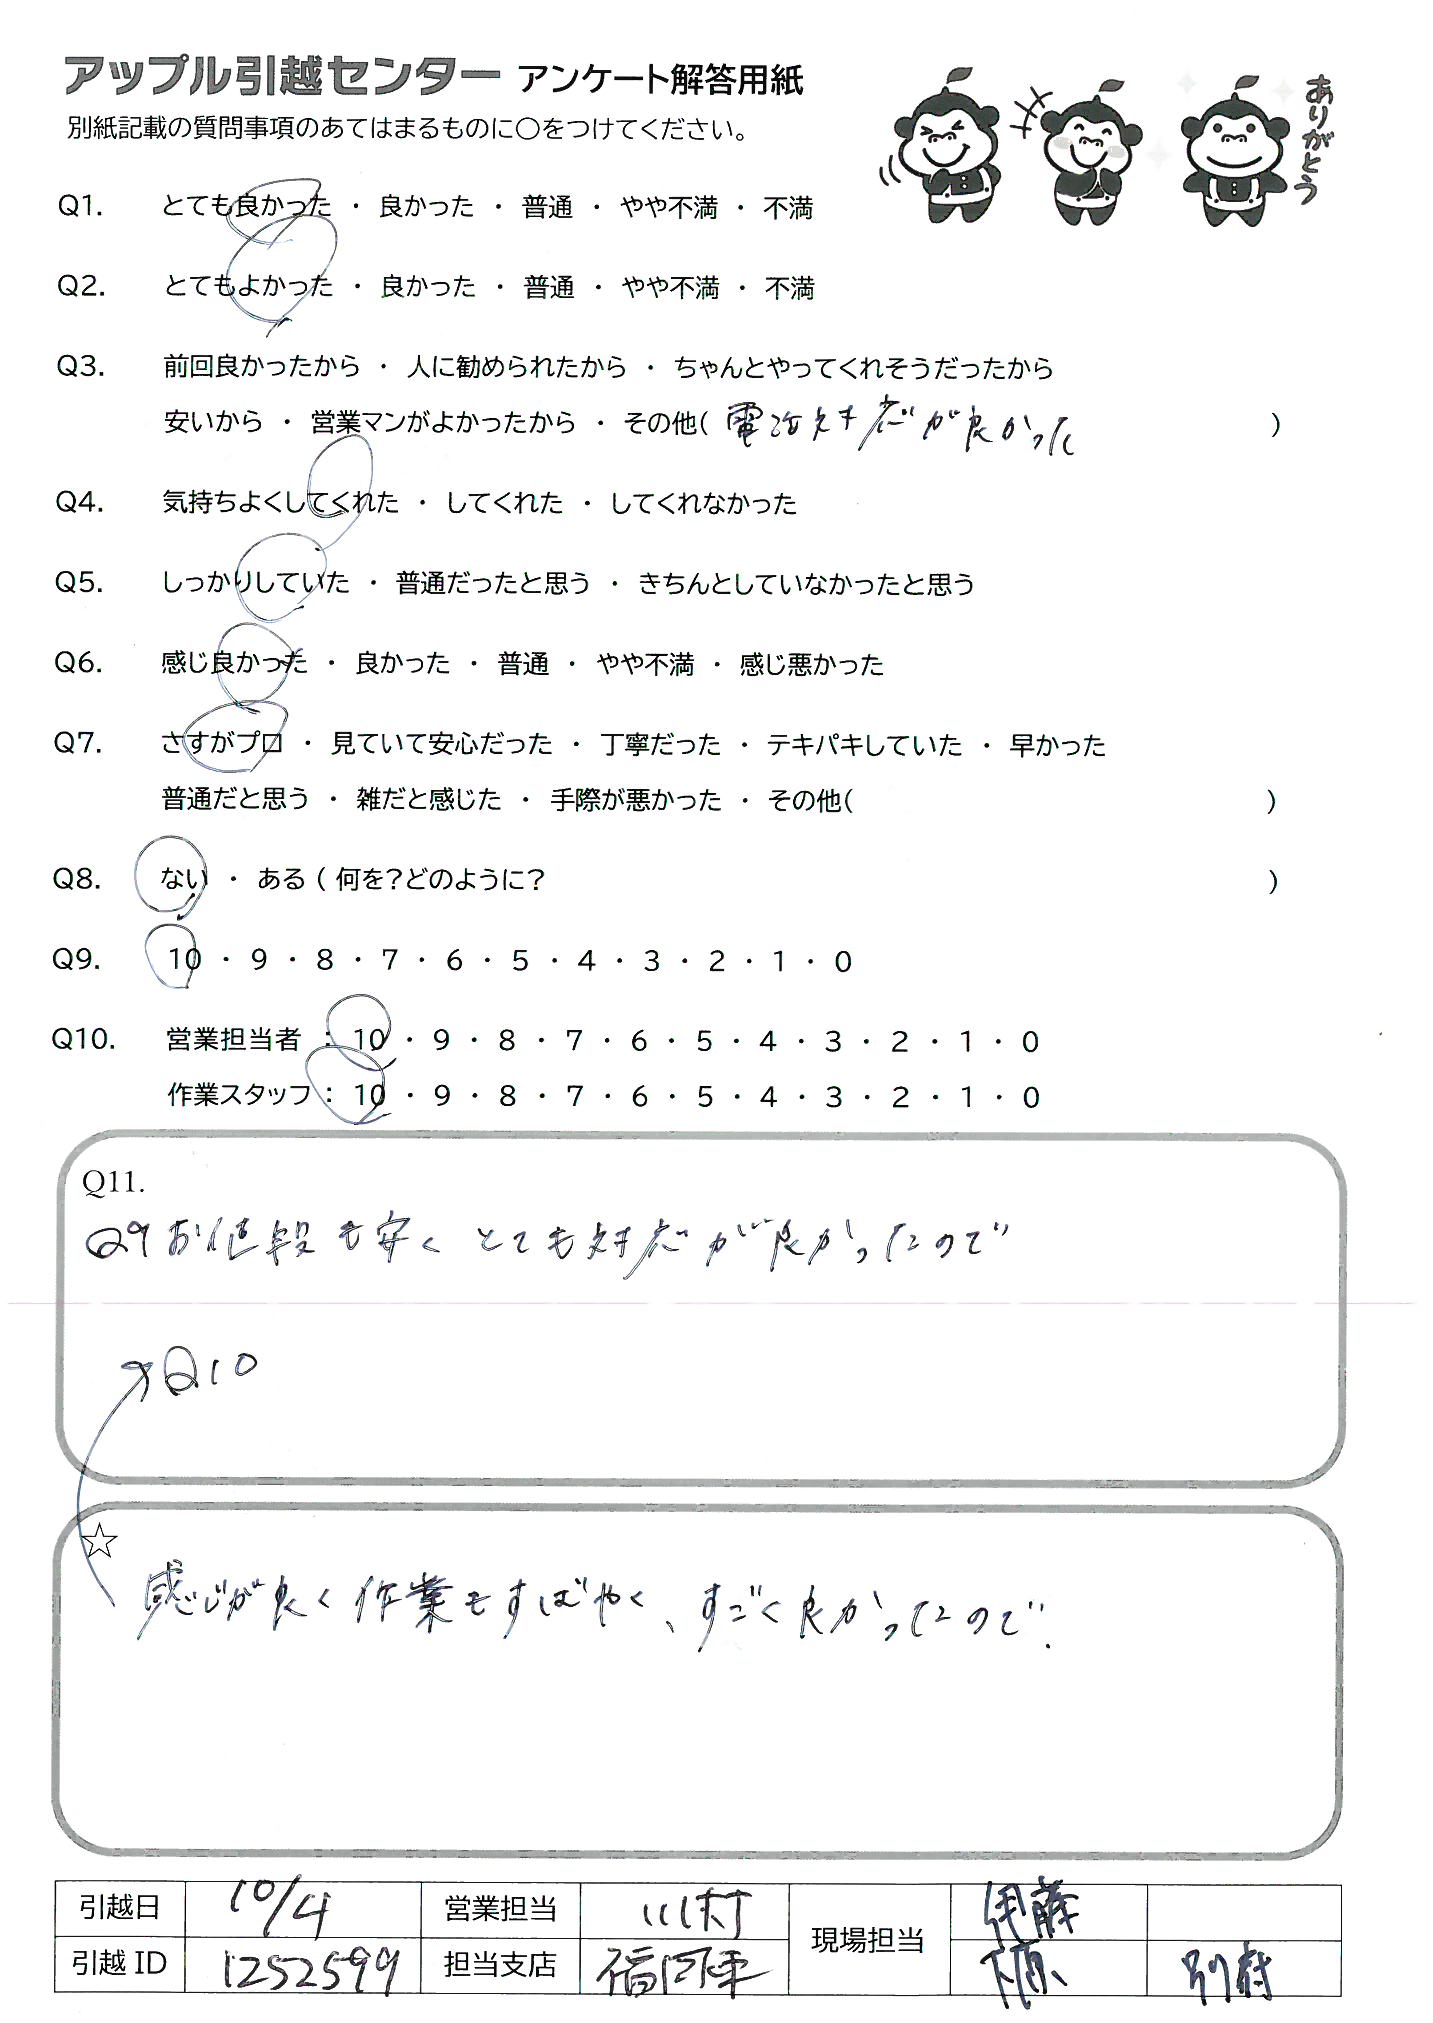 アップル引越センター アンケート解答用紙
ありがとう
別紙記載の質問事項のあてはまるものに○をつけてください。
Q1. とても良かった ・ 良かった ・ 普通 ・ やや不満 ・ 不満
Q2. とてもよかった ・ 良かった ・ 普通 ・ やや不満 ・ 不満
Q3. 前回良かったから ・ 人に勧められたから ・ ちゃんとやってくれそうだったから
安いから ・ 営業マンがよかったから ・ その他( 電話対応が良かった )
Q4. 気持ちよくしてくれた ・ してくれた ・ してくれなかった
Q5. しっかりしていた ・ 普通だったと思う ・ きちんとしていなかったと思う
Q6. 感じ良かった ・ 良かった ・ 普通 ・ やや不満 ・ 感じ悪かった
Q7. さすがプロ ・ 見ていて安心だった ・ 丁寧だった ・ テキパキしていた ・ 早かった
普通だと思う ・ 雑だと感じた ・ 手際が悪かった ・ その他( )
Q8. ない ・ ある ( 何を?どのように? )
Q9. 10 ・ 9 ・ 8 ・ 7 ・ 6 ・ 5 ・ 4 ・ 3 ・ 2 ・ 1 ・ 0
Q10. 営業担当者 : 10 ・ 9 ・ 8 ・ 7 ・ 6 ・ 5 ・ 4 ・ 3 ・ 2 ・ 1 ・ 0
作業スタッフ : 10 ・ 9 ・ 8 ・ 7 ・ 6 ・ 5 ・ 4 ・ 3 ・ 2 ・ 1 ・ 0
Q11.
Q9 お値段も安く とても対応が良かったので
Q10
☆
感じが良く作業もすばやく、すごく良かったので.
引越日 10/4 営業担当 川村 現場担当 伊藤
引越 ID 1252599 担当支店 福岡東 下原 別府